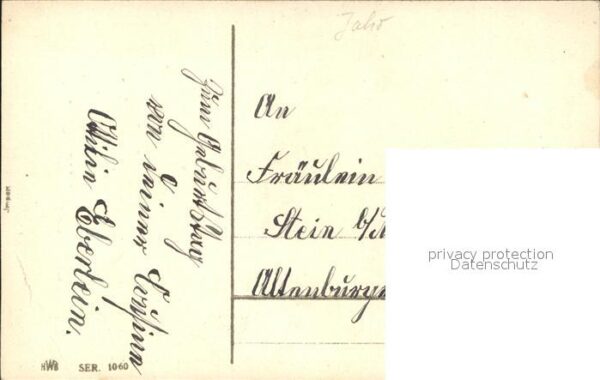 Jahr
zum Geburtstag
von deiner Cousine
Ottilie Eberlein.
An
Fräulein
Stein b/
Altenburg
privacy protection
Datenschutz
Import
HWB SER. 1060